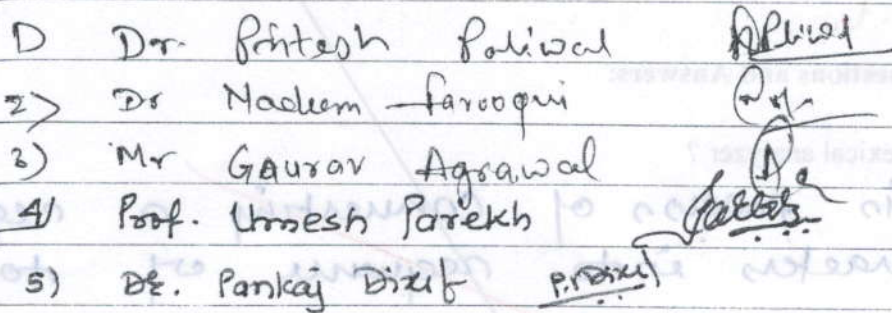 1) Dr. Pritesh Paliwal APaliwal
2) Dr Nadeem Farooqui
3) Mr Gaurav Agrawal
4) Prof. Umesh Parekh
5) Dr. Pankaj Dixit P.Dixit